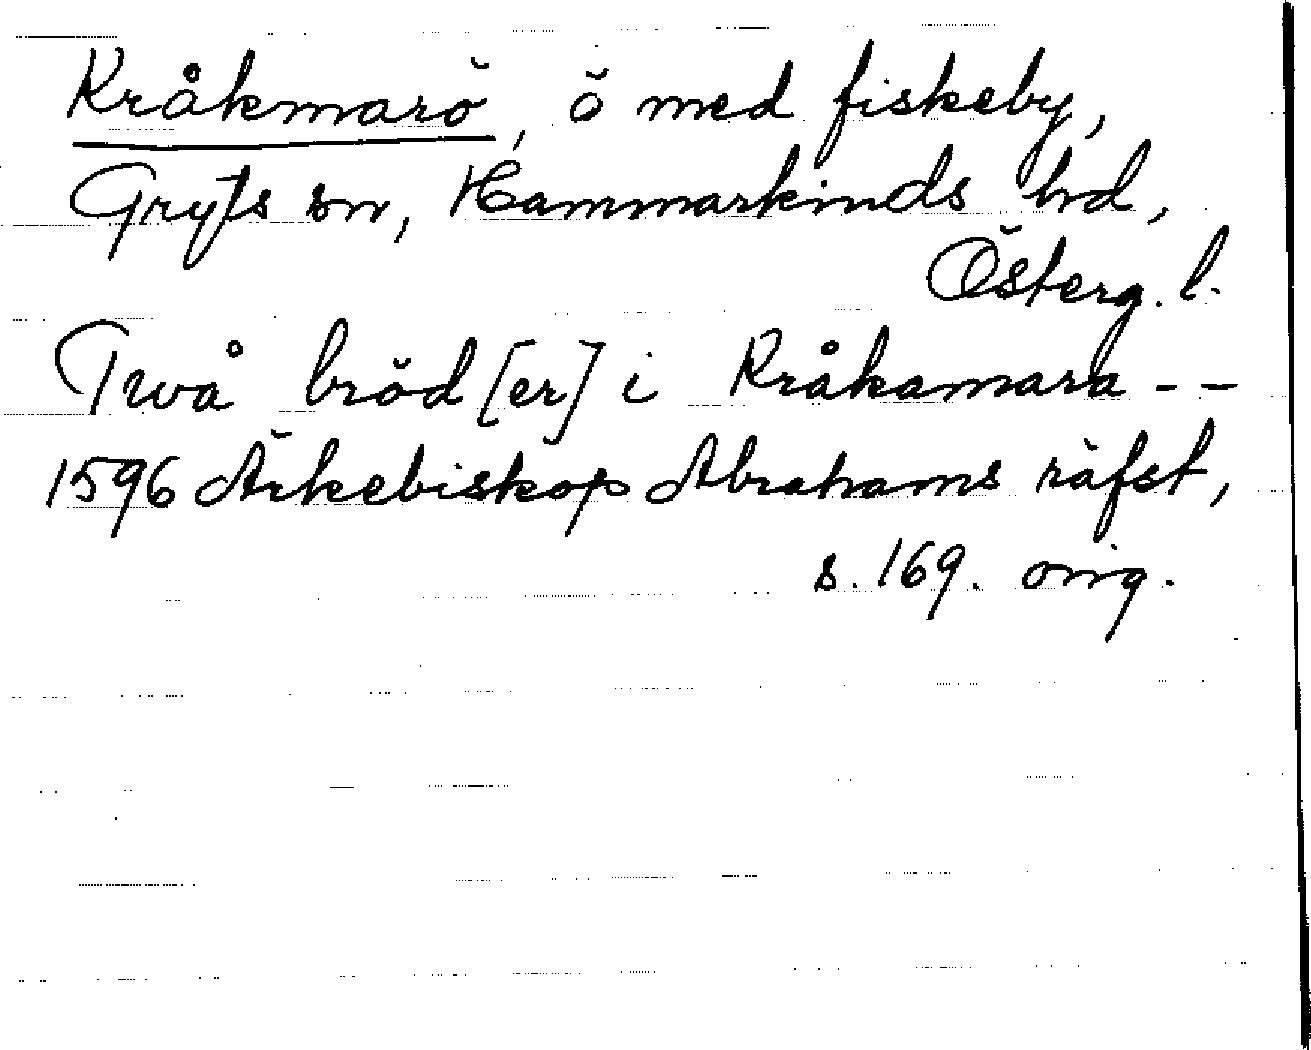 Kråkmarö, ö med fiskeby,
Gryts sn, Hammarkinds hd,
Österg. l.
Twå bröd[er] i Kråkamara --
1596 Ärkebiskop Abrahams räfst,
s. 169. orig.